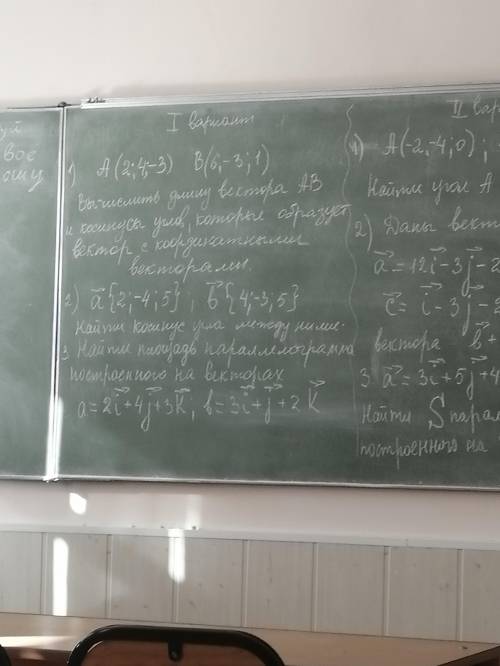 I вариант
1) A(2;4;-3) B(6;-3;1)
Вычислить длину вектора AB
и косинусы углов, которые образует
вектор с координатными
векторами.
2) a⃗{2;-4;5}, b⃗{4;-3;5}
Найти косинус угла между ними.
3. Найти площадь параллелограмма
построенного на векторах
a=2i⃗+4j⃗+3k⃗, b=3i⃗+j⃗+2k⃗
вое
II вар
1) A(-2,-4;0);
Найти угол A
2) Даны вект
a⃗=12i⃗-3j⃗-2
c⃗=i⃗-3j⃗-2
вектора b⃗+
3. a⃗=3i⃗+5j⃗+4
Найти S парал
построенного на